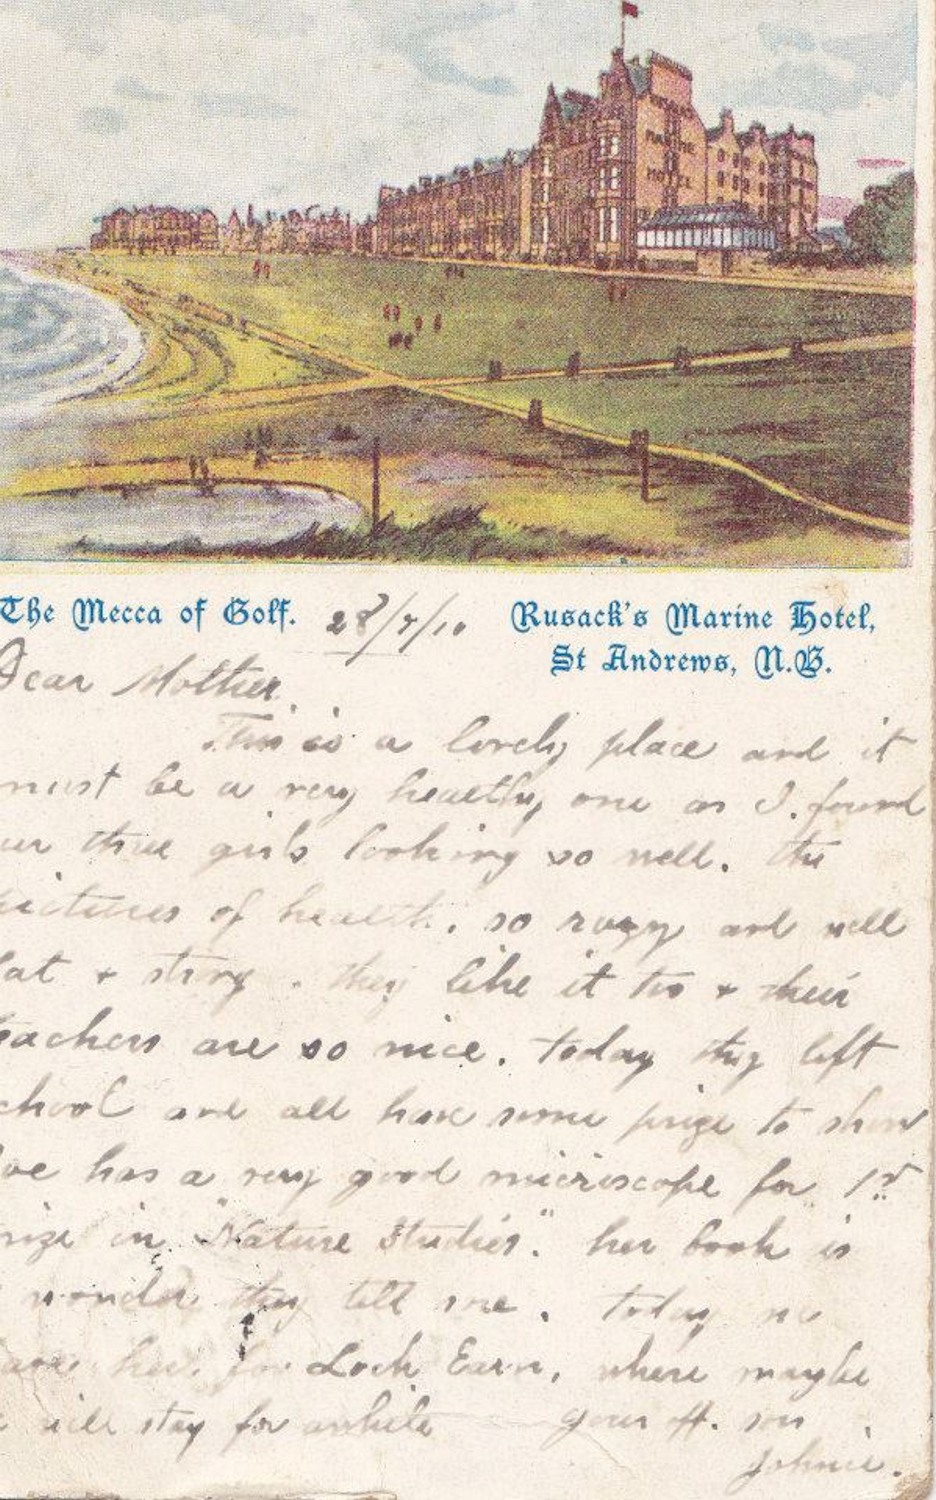 RUSACK'S
MARINE
HOTEL
The Mecca of Golf. 28/7/10 Rusack's Marine Hotel,
St Andrews, N.B.
Dear Mother.
This is a lovely place and it
must be a very healthy one as I found
our three girls looking so well. the
pictures of health, so rosy and well
fat + strong. they like it too + their
teachers are so nice. today they left
school and all have some prize to show
has a very good microscope for 1st
prize in "Nature Studies". her book is
wonder they tell me. today we
leave here for Loch Earn, where maybe
will stay for awhile your aff. son
Johnie.